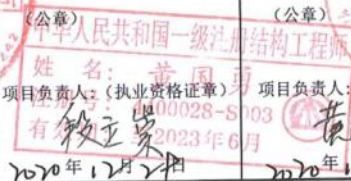 （公章）
（公章）
中华人民共和国一级注册结构工程师
姓 名：黄国勇
项目负责人：（执业资格证章）
项目负责人：
号：4100028-S003
有 2023年6月
2020年12月21日
2020年